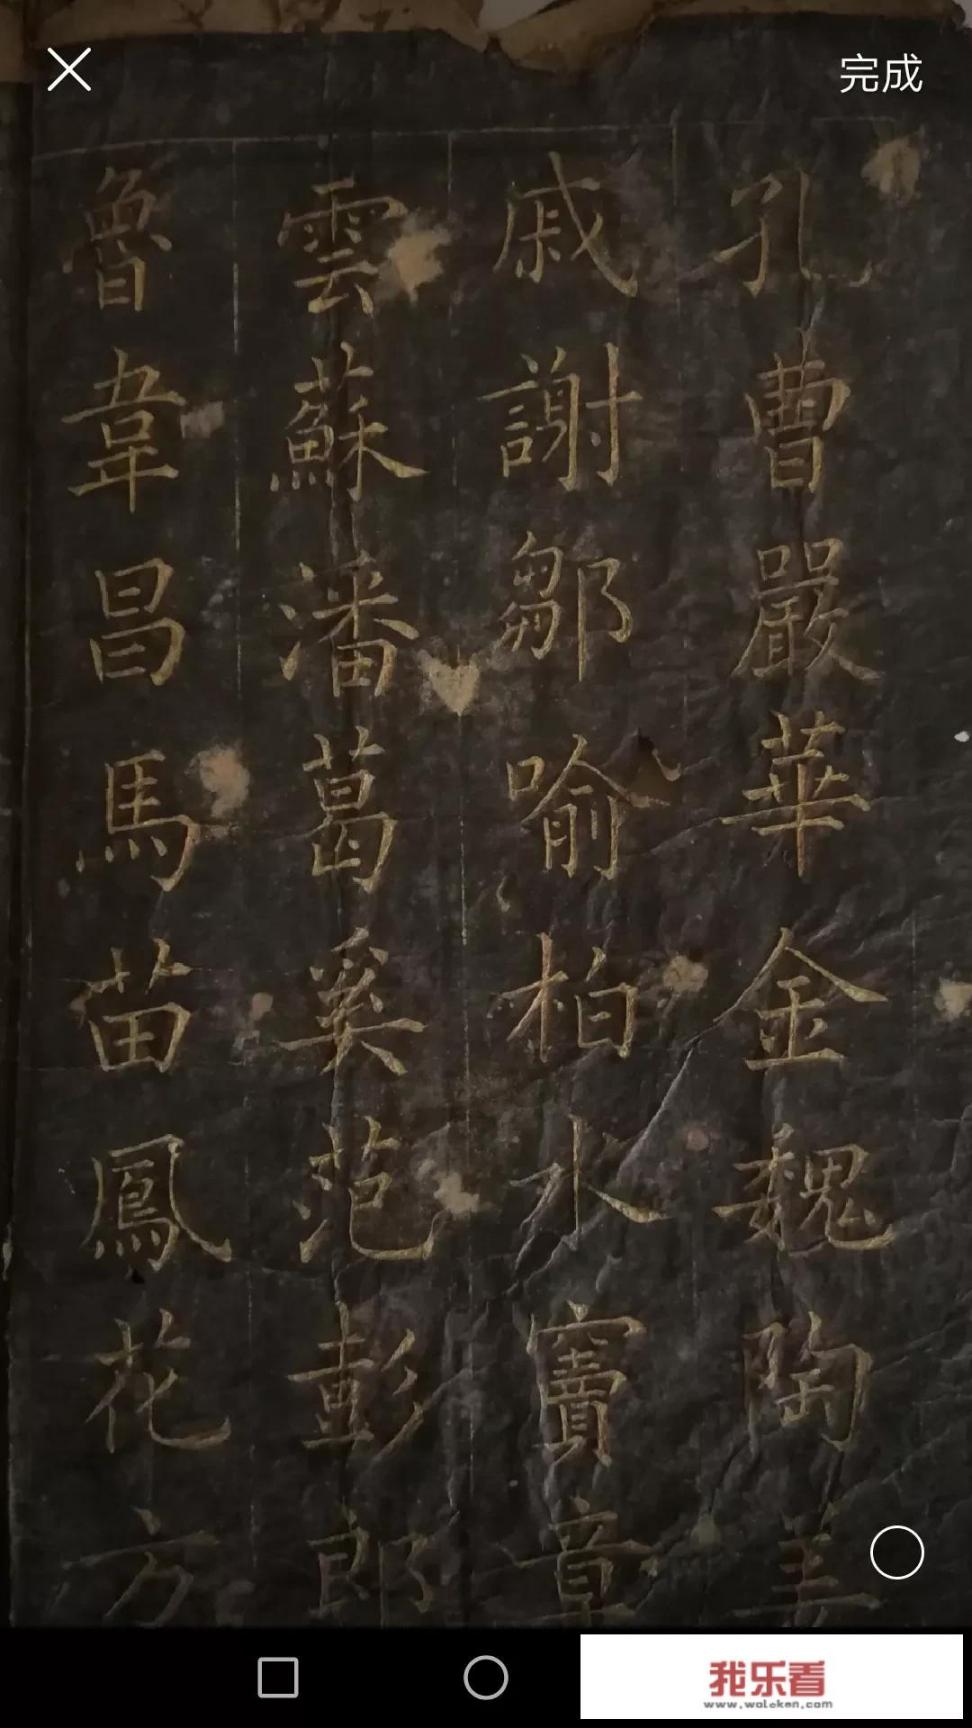 完成
孔曹嚴華金魏陶姜
戚謝鄒喻柏水竇章
雲蘇潘葛奚范彭郎
魯韋昌馬苗鳳花方
我乐看
www.woleken.com